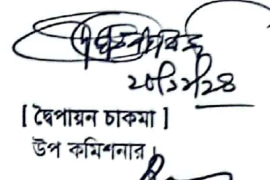 ২০/১২/২৪
[ দ্বৈপায়ন চাকমা ]
উপ কমিশনার